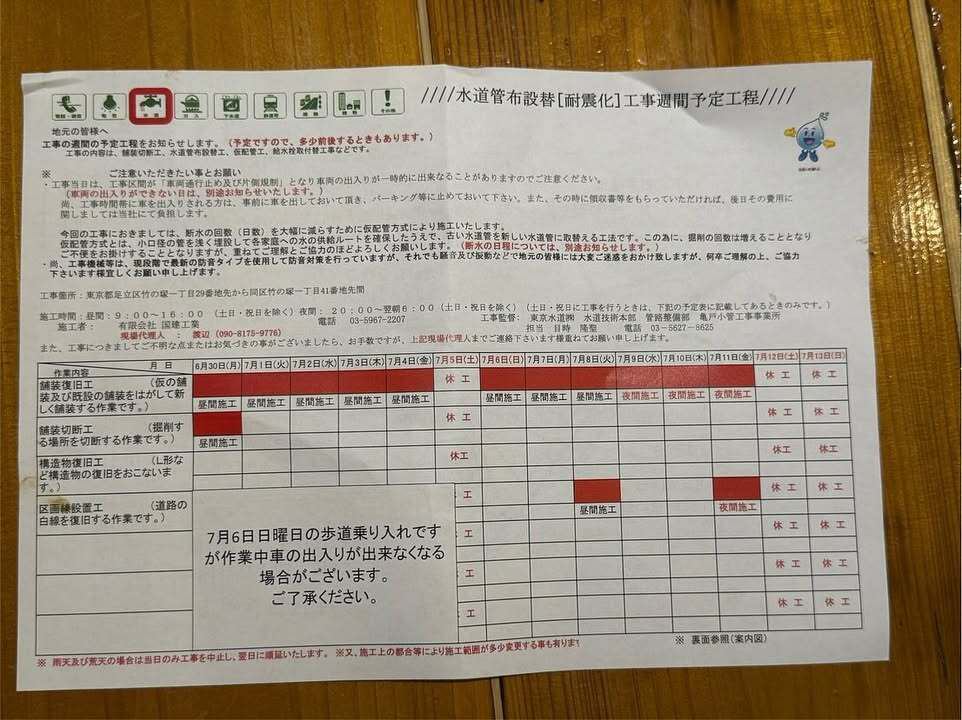 ////水道管布設替[耐震化]工事週間予定工程////
電気
水道
ガス
下水道
その他
地元の皆様へ
工事の週間の予定工程をお知らせします。(予定ですので、多少前後するときもあります。)
工事の内容は、舗装切断工、水道管布設替工、仮配管工、給水栓取付替工事などです。
※ ご注意いただきたい事とお願い
・工事当日は、工事区間が「車両通行止め及び片側規制」となり車両の出入りが一時的に出来なくなることがありますのでご注意ください。
(車両の出入りができない日は、別途お知らせいたします。)
尚、工事時間帯に車を出入りされる方は、事前に車を出しておいて頂き、パーキング等に止めておいて下さい。また、その時に領収書等をもらっていただければ、後日その費用に
関しましては当社にて負担します。
今回の工事におきましては、断水の回数(日数)を大幅に減らすために仮配管方式により施工いたします。
仮配管方式とは、小口径の管を浅く埋設して各家庭への水の供給ルートを確保したうえで、古い水道管を新しい水道管に取替える工法です。この為に、掘削の回数は増えることとなり
ご不便をお掛けすることとなりますが、重ねてご理解とご協力のほどよろしくお願いします。(断水の日程については、別途お知らせします。)
・尚、工事機械等は、現段階で最新の防音タイプを使用して防音対策を行っていますが、それでも騒音及び振動などで地元の皆様には大変ご迷惑をおかけ致しますが、何卒ご理解の上、ご協力
下さいます様宜しくお願い申し上げます。
工事箇所:東京都足立区竹の塚一丁目29番地先から同区竹の塚一丁目41番地先間
施工時間:昼間:9:00~16:00 (土日・祝日を除く) 夜間:20:00~翌朝6:00 (土日・祝日を除く) (土日・祝日に工事を行うときは、下記の予定表に記載してあるときのみです。)
施工者: 有限会社 国建工業 電話 03-5967-2207 工事監督: 東京水道㈱ 水道技術本部 管路整備部 亀戸小管工事事業所
現場代理人 : 渡辺(090-8175-9776) 担当 目時 隆聖 電話 03-5627-8625
また、工事につきましてご不明な点またはお気づきの事がございましたら、お手数ですが、上記現場代理人までご連絡下さいます様重ねてお願い申し上げます。
作業内容 月 日 6月30日(月) 7月1日(火) 7月2日(水) 7月3日(木) 7月4日(金) 7月5日(土) 7月6日(日) 7月7日(月) 7月8日(火) 7月9日(水) 7月10日(木) 7月11日(金) 7月12日(土) 7月13日(日)
舗装復旧工 (仮の舗
装及び既設の舗装をはがして新
しく舗装する作業です。)
休工 休工 休工
昼間施工 昼間施工 昼間施工 昼間施工 昼間施工 昼間施工 昼間施工 昼間施工 夜間施工 夜間施工 夜間施工
舗装切断工 (掘削す
る場所を切断する作業です。)
休工 休工 休工
昼間施工
構造物復旧工 (L形な
ど構造物の復旧をおこないま
す。)
休工 休工 休工
区画線設置工 (道路の
白線を復旧する作業です。)
工 休工 休工
昼間施工 夜間施工
工 休工 休工
工 休工 休工
工 休工 休工
7月6日日曜日の歩道乗り入れです
が作業中車の出入りが出来なくなる
場合がございます。
ご了承ください。
※ 雨天及び荒天の場合は当日のみ工事を中止し、翌日に順延いたします。 ※又、施工上の都合等により施工範囲が多少変更する事も有ります
※ 裏面参照(案内図)